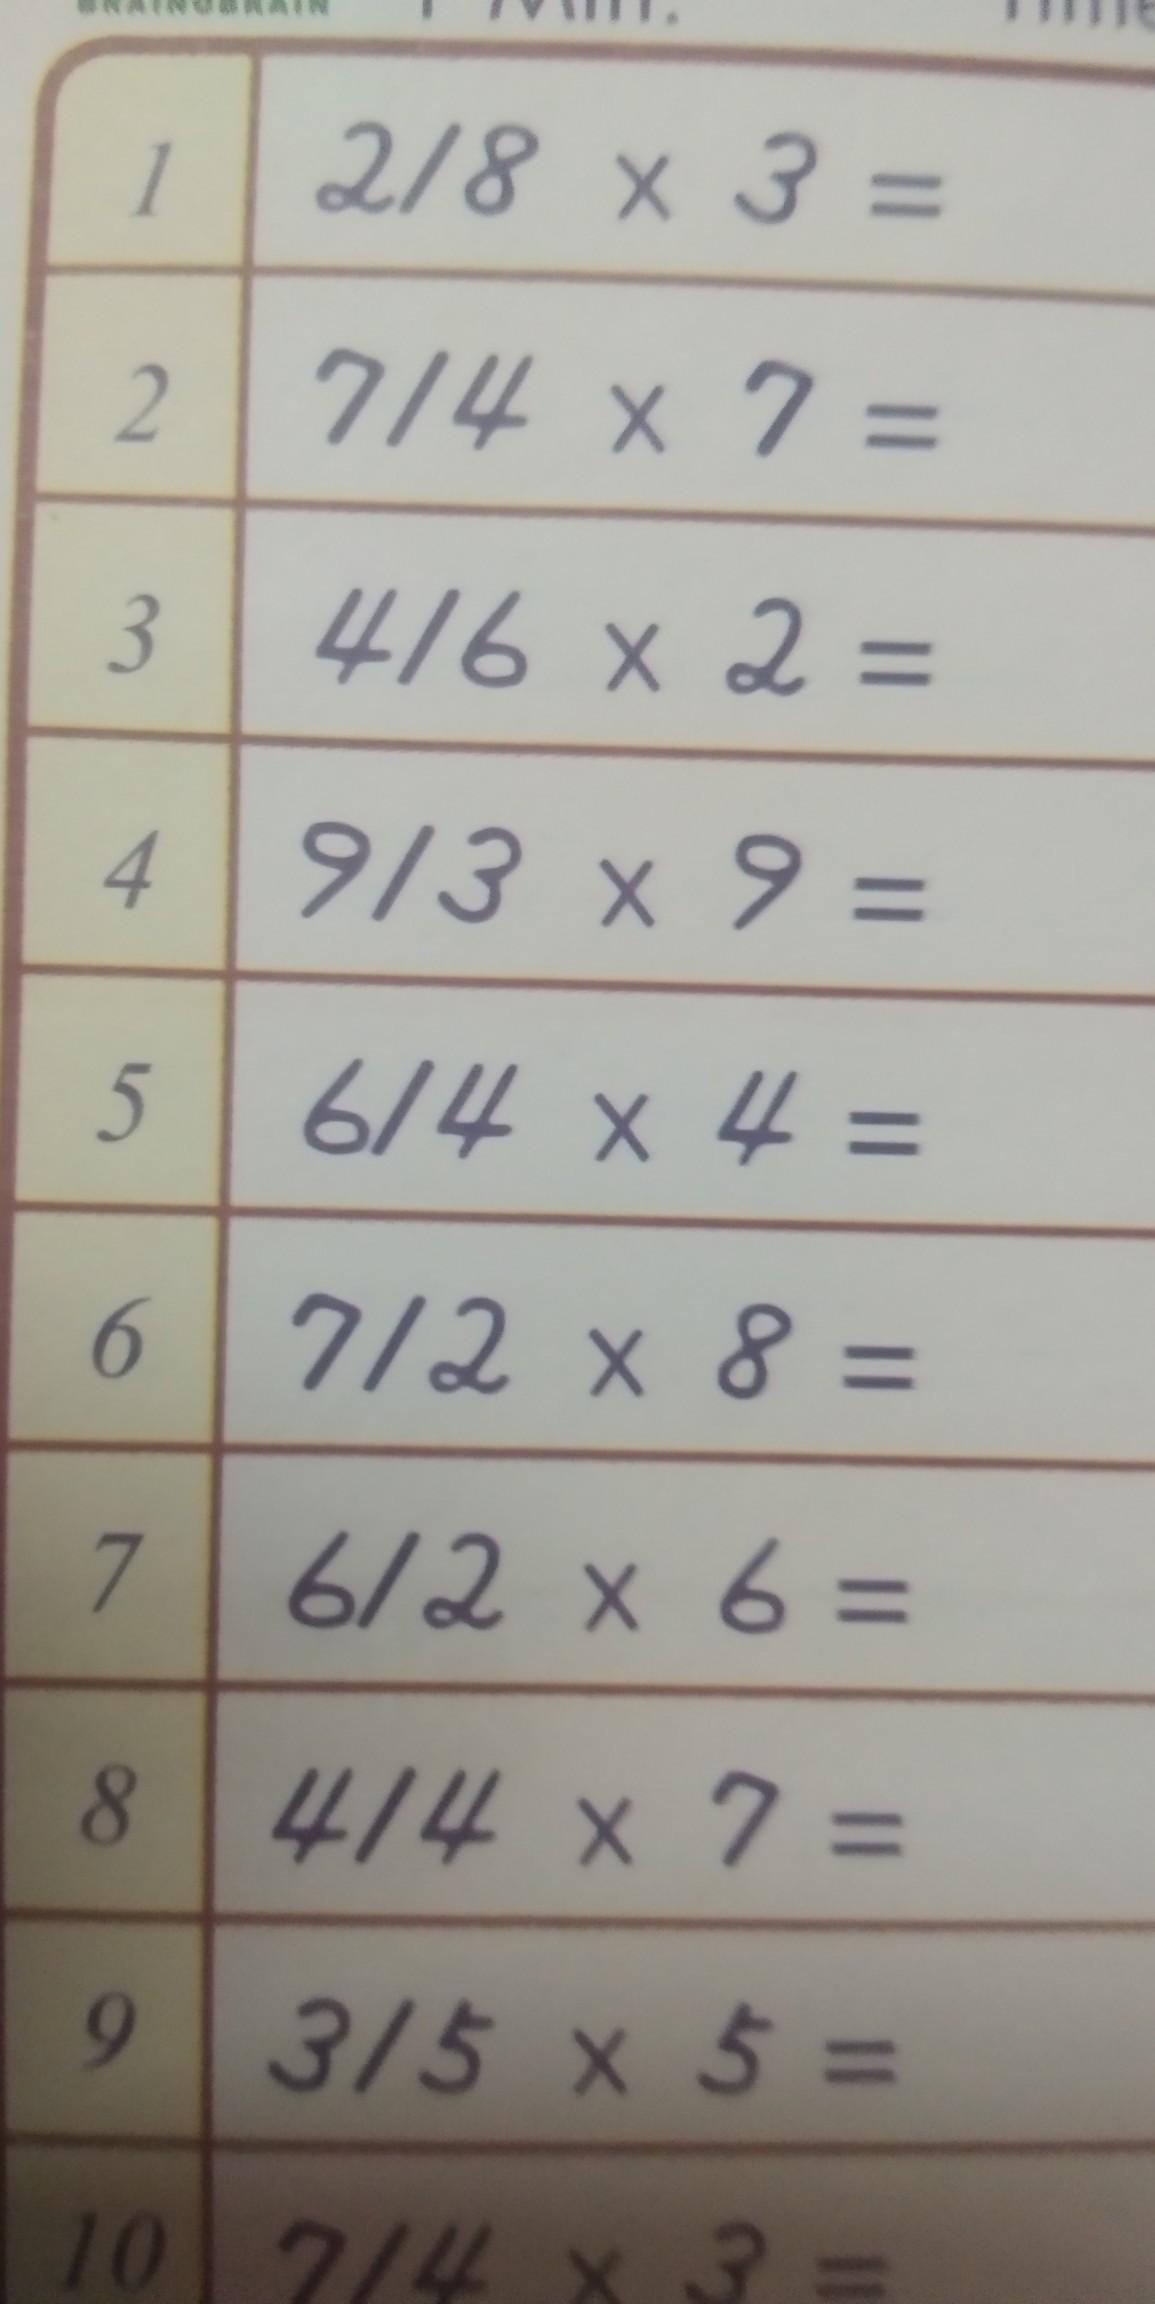 BRAINOBRAIN 1 Min. Time
1 2/8 × 3 =
2 7/4 × 7 =
3 4/6 × 2 =
4 9/3 × 9 =
5 6/4 × 4 =
6 7/2 × 8 =
7 6/2 × 6 =
8 4/4 × 7 =
9 3/5 × 5 =
10 7/4 × 3 =